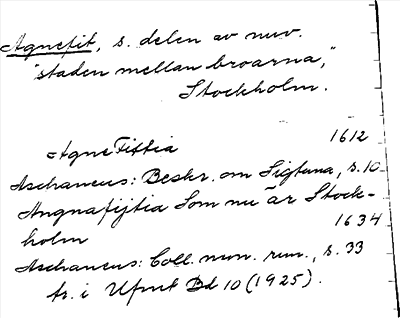 Agnefit, s. delen av nuv.
"staden mellan broarna,"
Stockholm.
AgneFittia 1612
Aschaneus: Beskr. om Sigtuna, s. 10
Angnafijtia Som nu är Stock-
holm 1634
Aschaneus: Coll. mon. run., s. 33
tr. i Ufmt Bd 10 (1925).